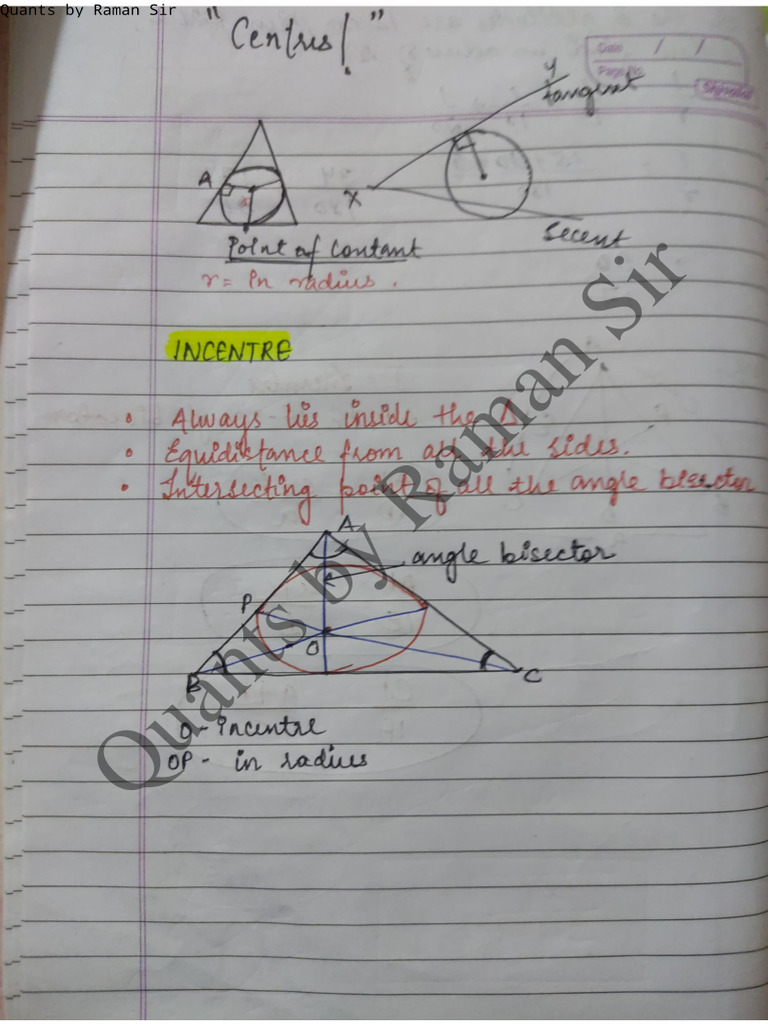 Quants by Raman Sir
"Centres!"
Date / /
Page No.
Shivalal
y
tangent
A
X
r
secent
Point of Contant
r = In radius.
INCENTRE
• Always lies inside the Δ
• Equidistance from all the sides.
• Intersecting point of all the angle bisector
A
angle bisector
P
O
B
C
O - incentre
OP - in radius
Quants by Raman Sir